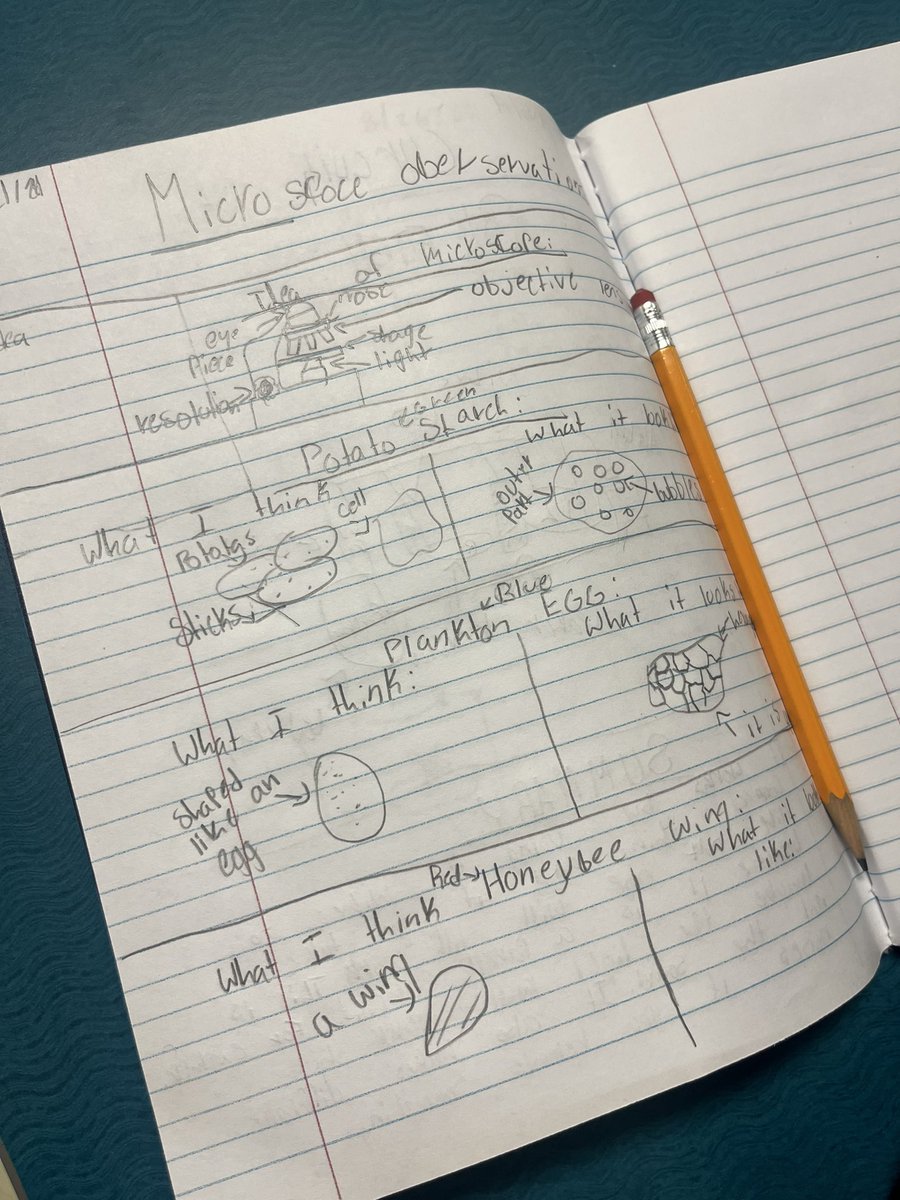 Microsfoce oberservation
Idea of microscope:
objective lens
eye
Piece
nose
stage
light
resolution
Green
Potato Starch:
What I think
What it look
Potatos
cell
outer
Part
bubbles
Sticks
Blue
Plankton EGG:
What I think:
What it looks
shaped
like an
egg
it is
Red Honeybee wing:
What I think
What it
like:
a wing